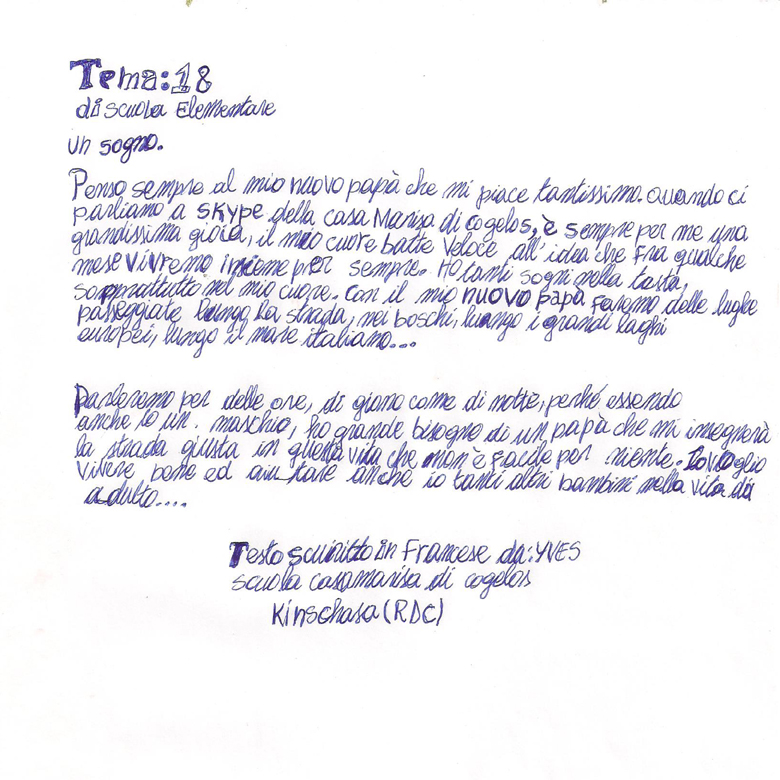 Tema:18
di scuola Elementare
un sogno.
Penso sempre al mio nuovo papà che mi piace tantissimo. quando ci
parliamo a skype della casa Marisa di cogelos, è sempre per me una
grandissima gioia, il mio cuore batte veloce all'idea che fra qualche
mese vivremo insieme per sempre. Ho tanti sogni nella testa,
soprattutto nel mio cuore. Con il mio nuovo papà faremo delle lughe
passeggiate lungo la strada, nei boschi, luango i grandi laghi
europei, lungo il mare italiano...
Parleremo per delle ore, di giono come di notte, perhé essendo
anche io un. maschio, ho grande bisogno di un papà che mi insegnerà
la strada giusta in questa vita che non è facile per niente. Io voglio
vivere bene ed aiutare anche io tanti altri bambini nella vita di
adulto....
Testo in Francese da:YVES
scuola casamarisa di cogelos
Kinschasa (RDC)